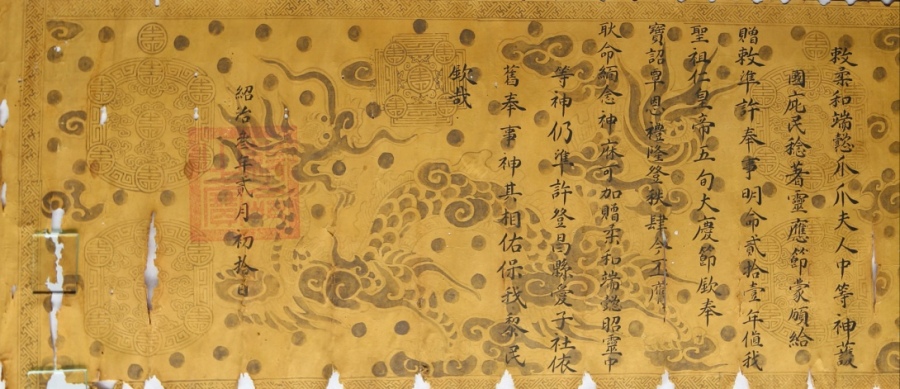 敕柔和端懿爪爪夫人中等神護
國庇民稔著靈應節蒙頒給
贈敕準許奉事明命貳拾壹年值我
聖祖仁皇帝五旬大慶節欽奉
寶詔覃恩禮隆登秩肆今丕膺
耿命緬念神庥可加贈柔和端懿昭靈中
等神仍準許登昌縣愛子社依
舊奉事神其相佑保我黎民
欽哉
紹治叁年貳月初拾日